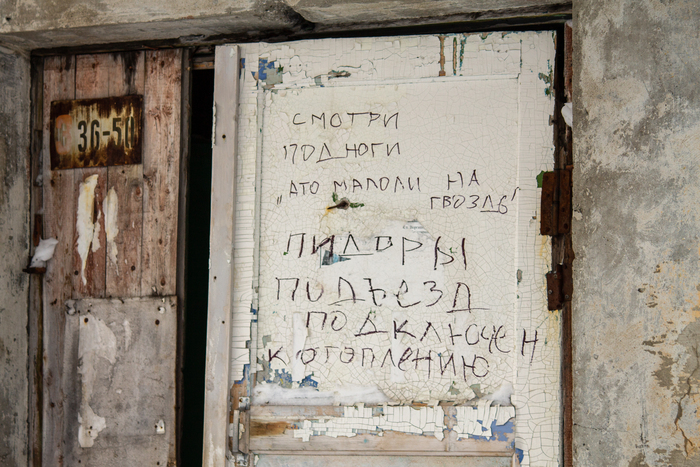 36-50
СМОТРИ
ПОД НОГИ
„АТО МАПОЛИ НА
ГВОЗДЬ"
ПИДОРЫ
ПОДЪЕЗД
ПОДКЛЮЧЕН
К ОТОПЛЕНИЮ